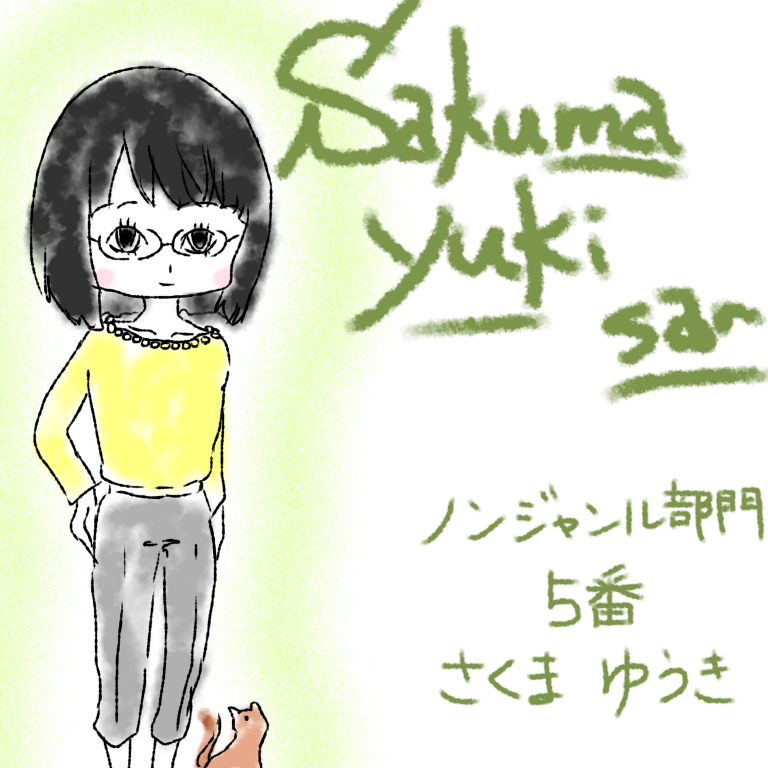 Sakuma
yuki
san
ノンジャンル部門
5番
さくま ゆうき